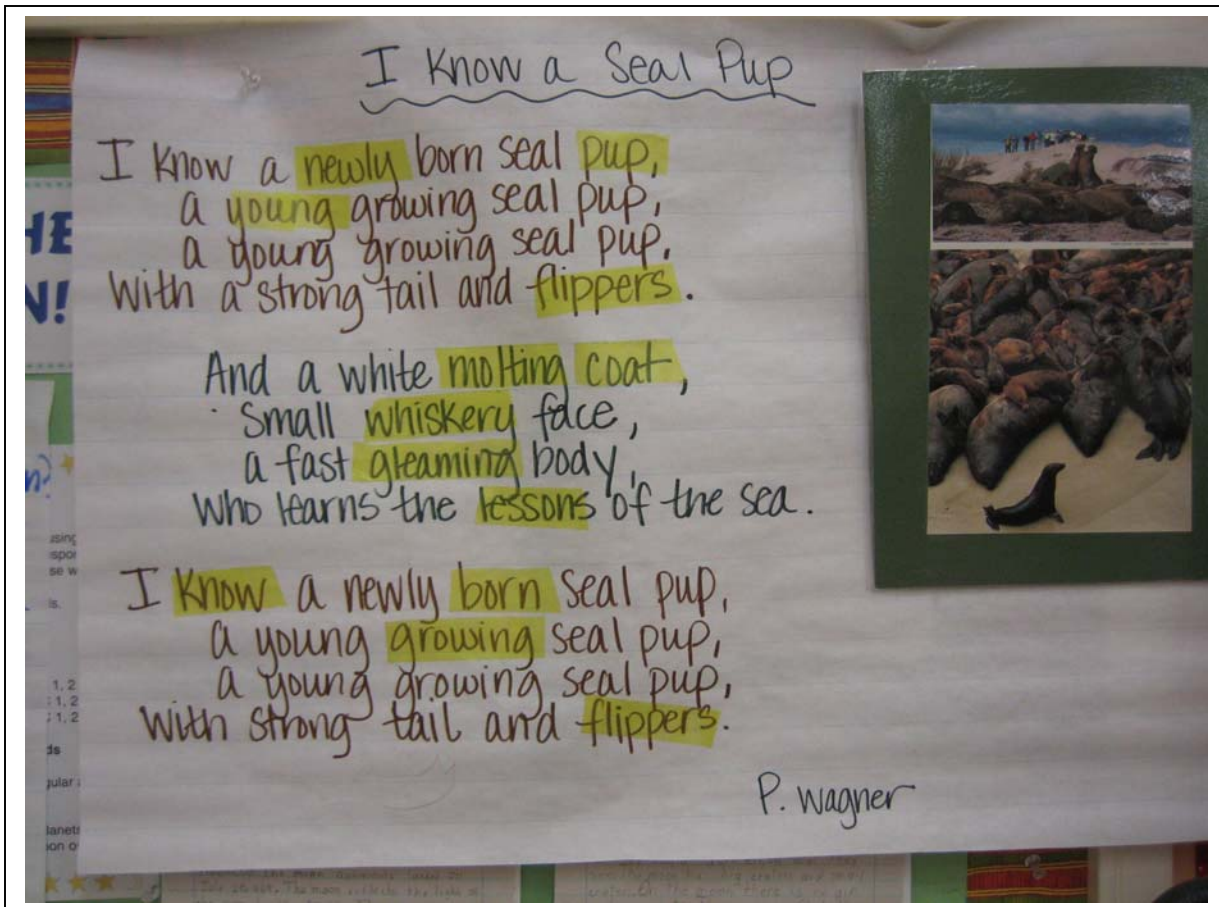 I Know a Seal Pup
I Know a newly born seal pup,
a young growing seal pup,
a young growing seal pup,
With a strong tail and flippers.
And a white molting coat,
Small whiskery face,
a fast gleaming body,
Who learns the lessons of the sea.
I Know a newly born seal pup,
a young growing seal pup,
a young growing seal pup,
With strong tail and flippers.
P. Wagner
HE
N!
n?
using
spor
se w
ls.
1, 2
1, 2
1, 2
ds
gular
lanets
ion o